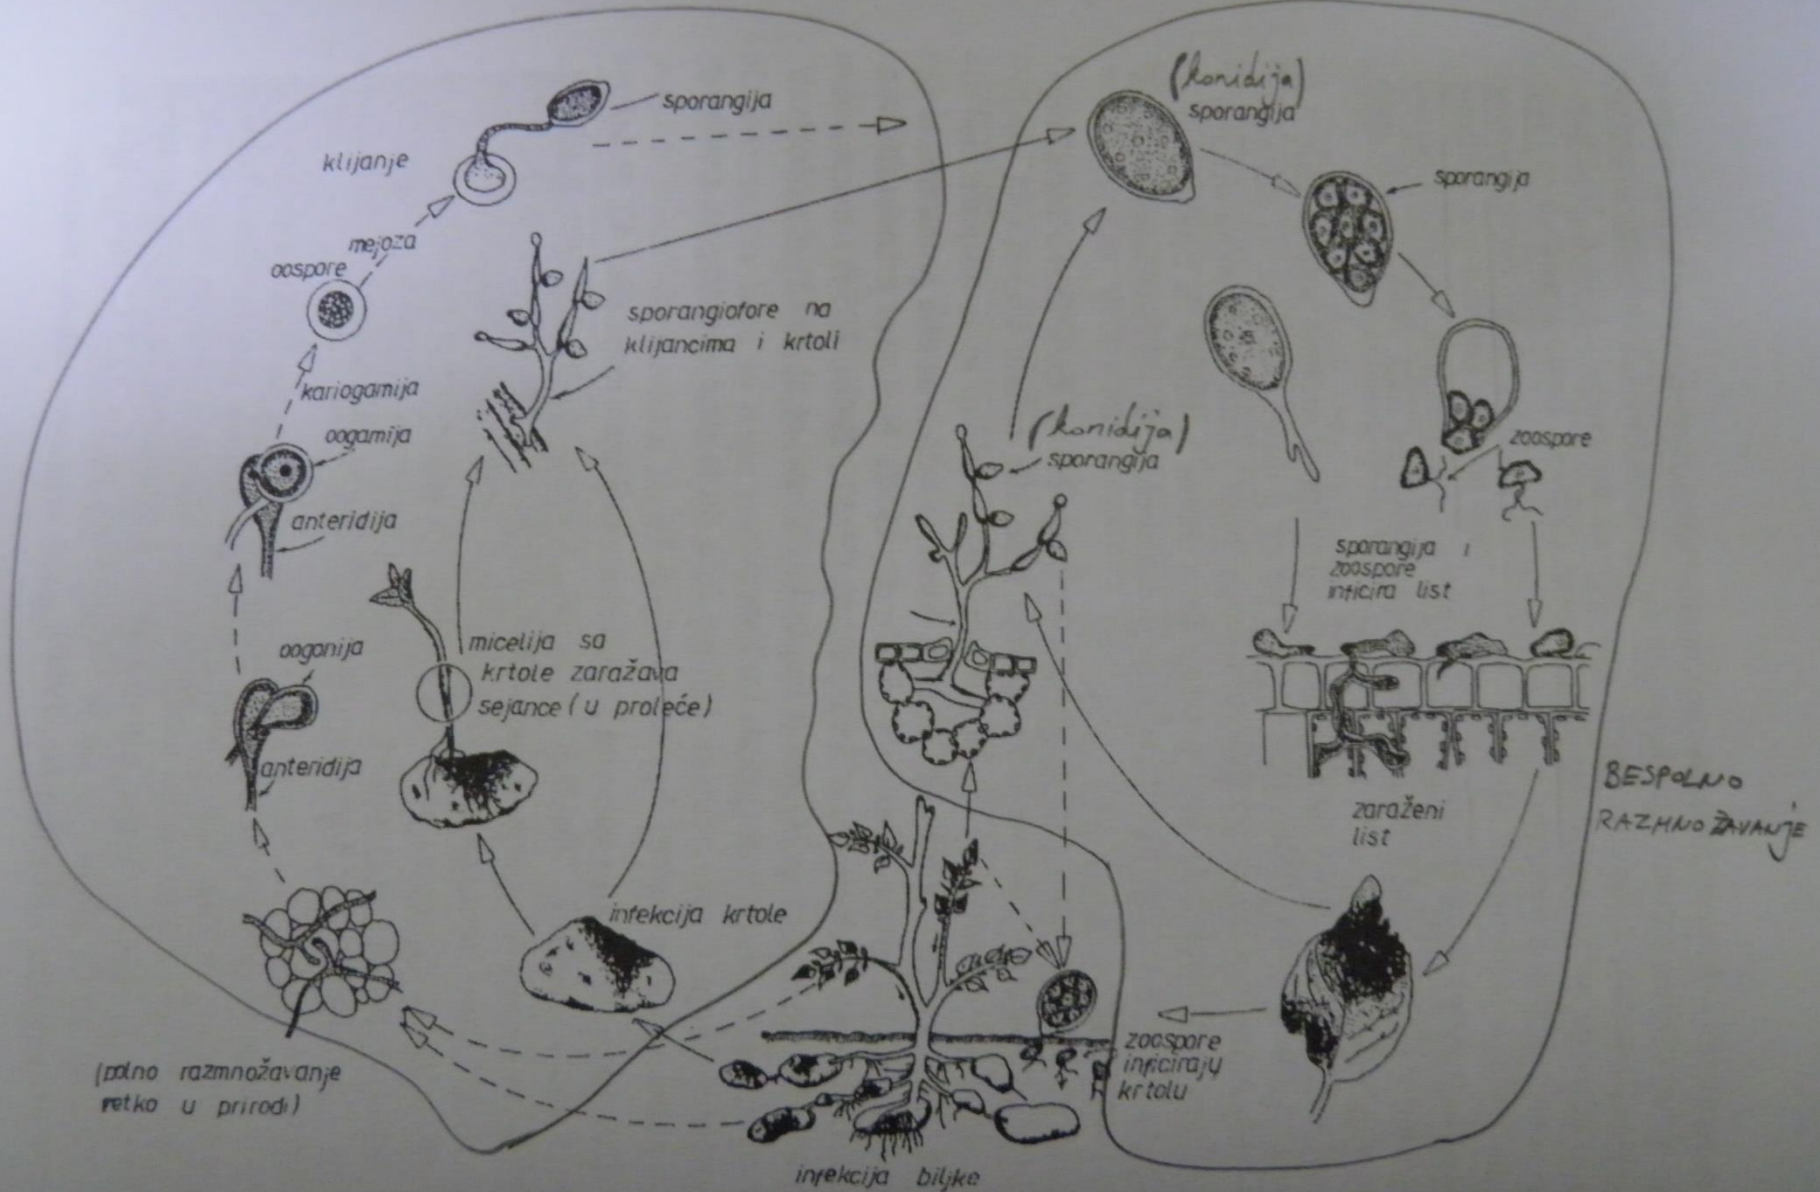 sporangija
klijanje
mejoza
oospore
sporangiofore na
klijancima i krtoli
kariogamija
oogamija
anteridija
oogonija
anteridija
micelija sa
krtole zaražava
sejance (u proleće)
infekcija krtole
(polno razmnožavanje
retko u prirodi)
infekcija biljke
(konidija)
sporangija
sporangija
(konidija)
sporangija
zoospore
sporangija i
zoospore
inficira list
zaraženi
list
BESPOLNO
RAZMNOŽAVANJE
zoospore
inficiraju
krtolu